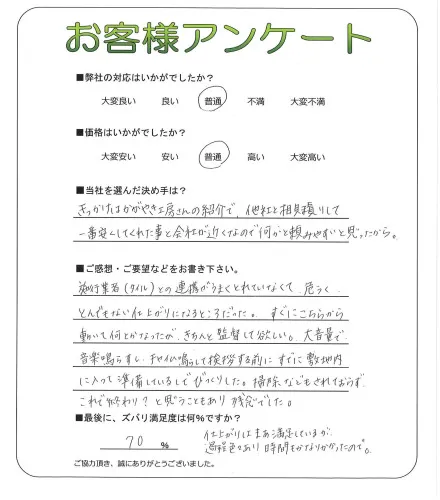 お客様アンケート
■弊社の対応はいかがでしたか?
大変良い 良い 普通 不満 大変不満
■価格はいかがでしたか?
大変安い 安い 普通 高い 大変高い
■当社を選んだ決め手は?
きっかけはかがやき工房さんの紹介で、他社と相見積りして
一番安くしてくれた事と会社が近くなので何かと頼みやすいと思ったから。
■ご感想・ご要望などをお書き下さい。
施行業者(タイル)との連携がうまくとれていなくて、危うく
とんでもない仕上がりになるところだった。すぐにこちらから
動いて何とかなったが、きちんと監督して欲しい。大音量で
音楽鳴らすし、チャイム鳴らして挨拶する前にすでに敷地内
に入って準備しているしでびっくりした。掃除などもされておらず、
これで終わり?と思うこともあり残念でした。
■最後に、ズバリ満足度は何%ですか?
70 %
仕上がりはまあ満足しているが、
過程色々あり時間もかなりかかったので。
ご協力頂き、誠にありがとうございました。